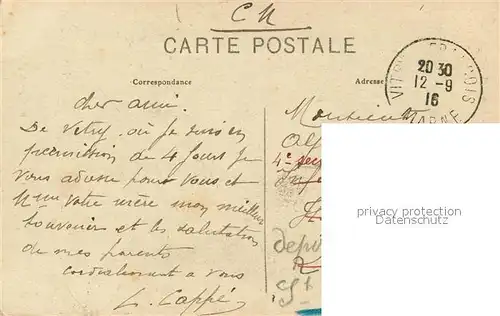 CM
CARTE POSTALE
Correspondance
Adresse
VITRY FRANÇOIS
20 30
12 - 9
16
MARNE
cher ami.
De Vitry où je suis en
permission de 4 jours je
vous adresse pour vous et
Mme votre mère mon meilleur
souvenir et les salutations
de mes parents
cordialement a vous
L. Cappé
Monsieur
4e
St
privacy protection
Datenschutz